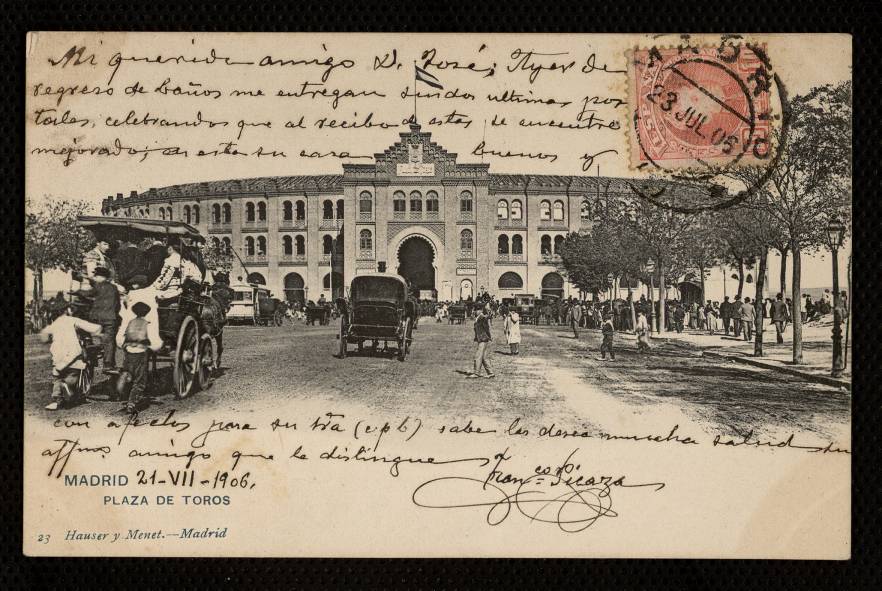 Mi querido amigo D. José: Ayer de
regreso de baños me entregan sus dos ultimas pos
tales, celebrando que al recibo de estas se encuentre
mejorado; en esta su casa buenos y
23 JUL 06
con afectos para su tía (q p b) sabe les desea mucha salud su
affmo. amigo que le distingue
Franco. Picaza
MADRID 21-VII-1906.
PLAZA DE TOROS
23 Hauser y Menet.—Madrid